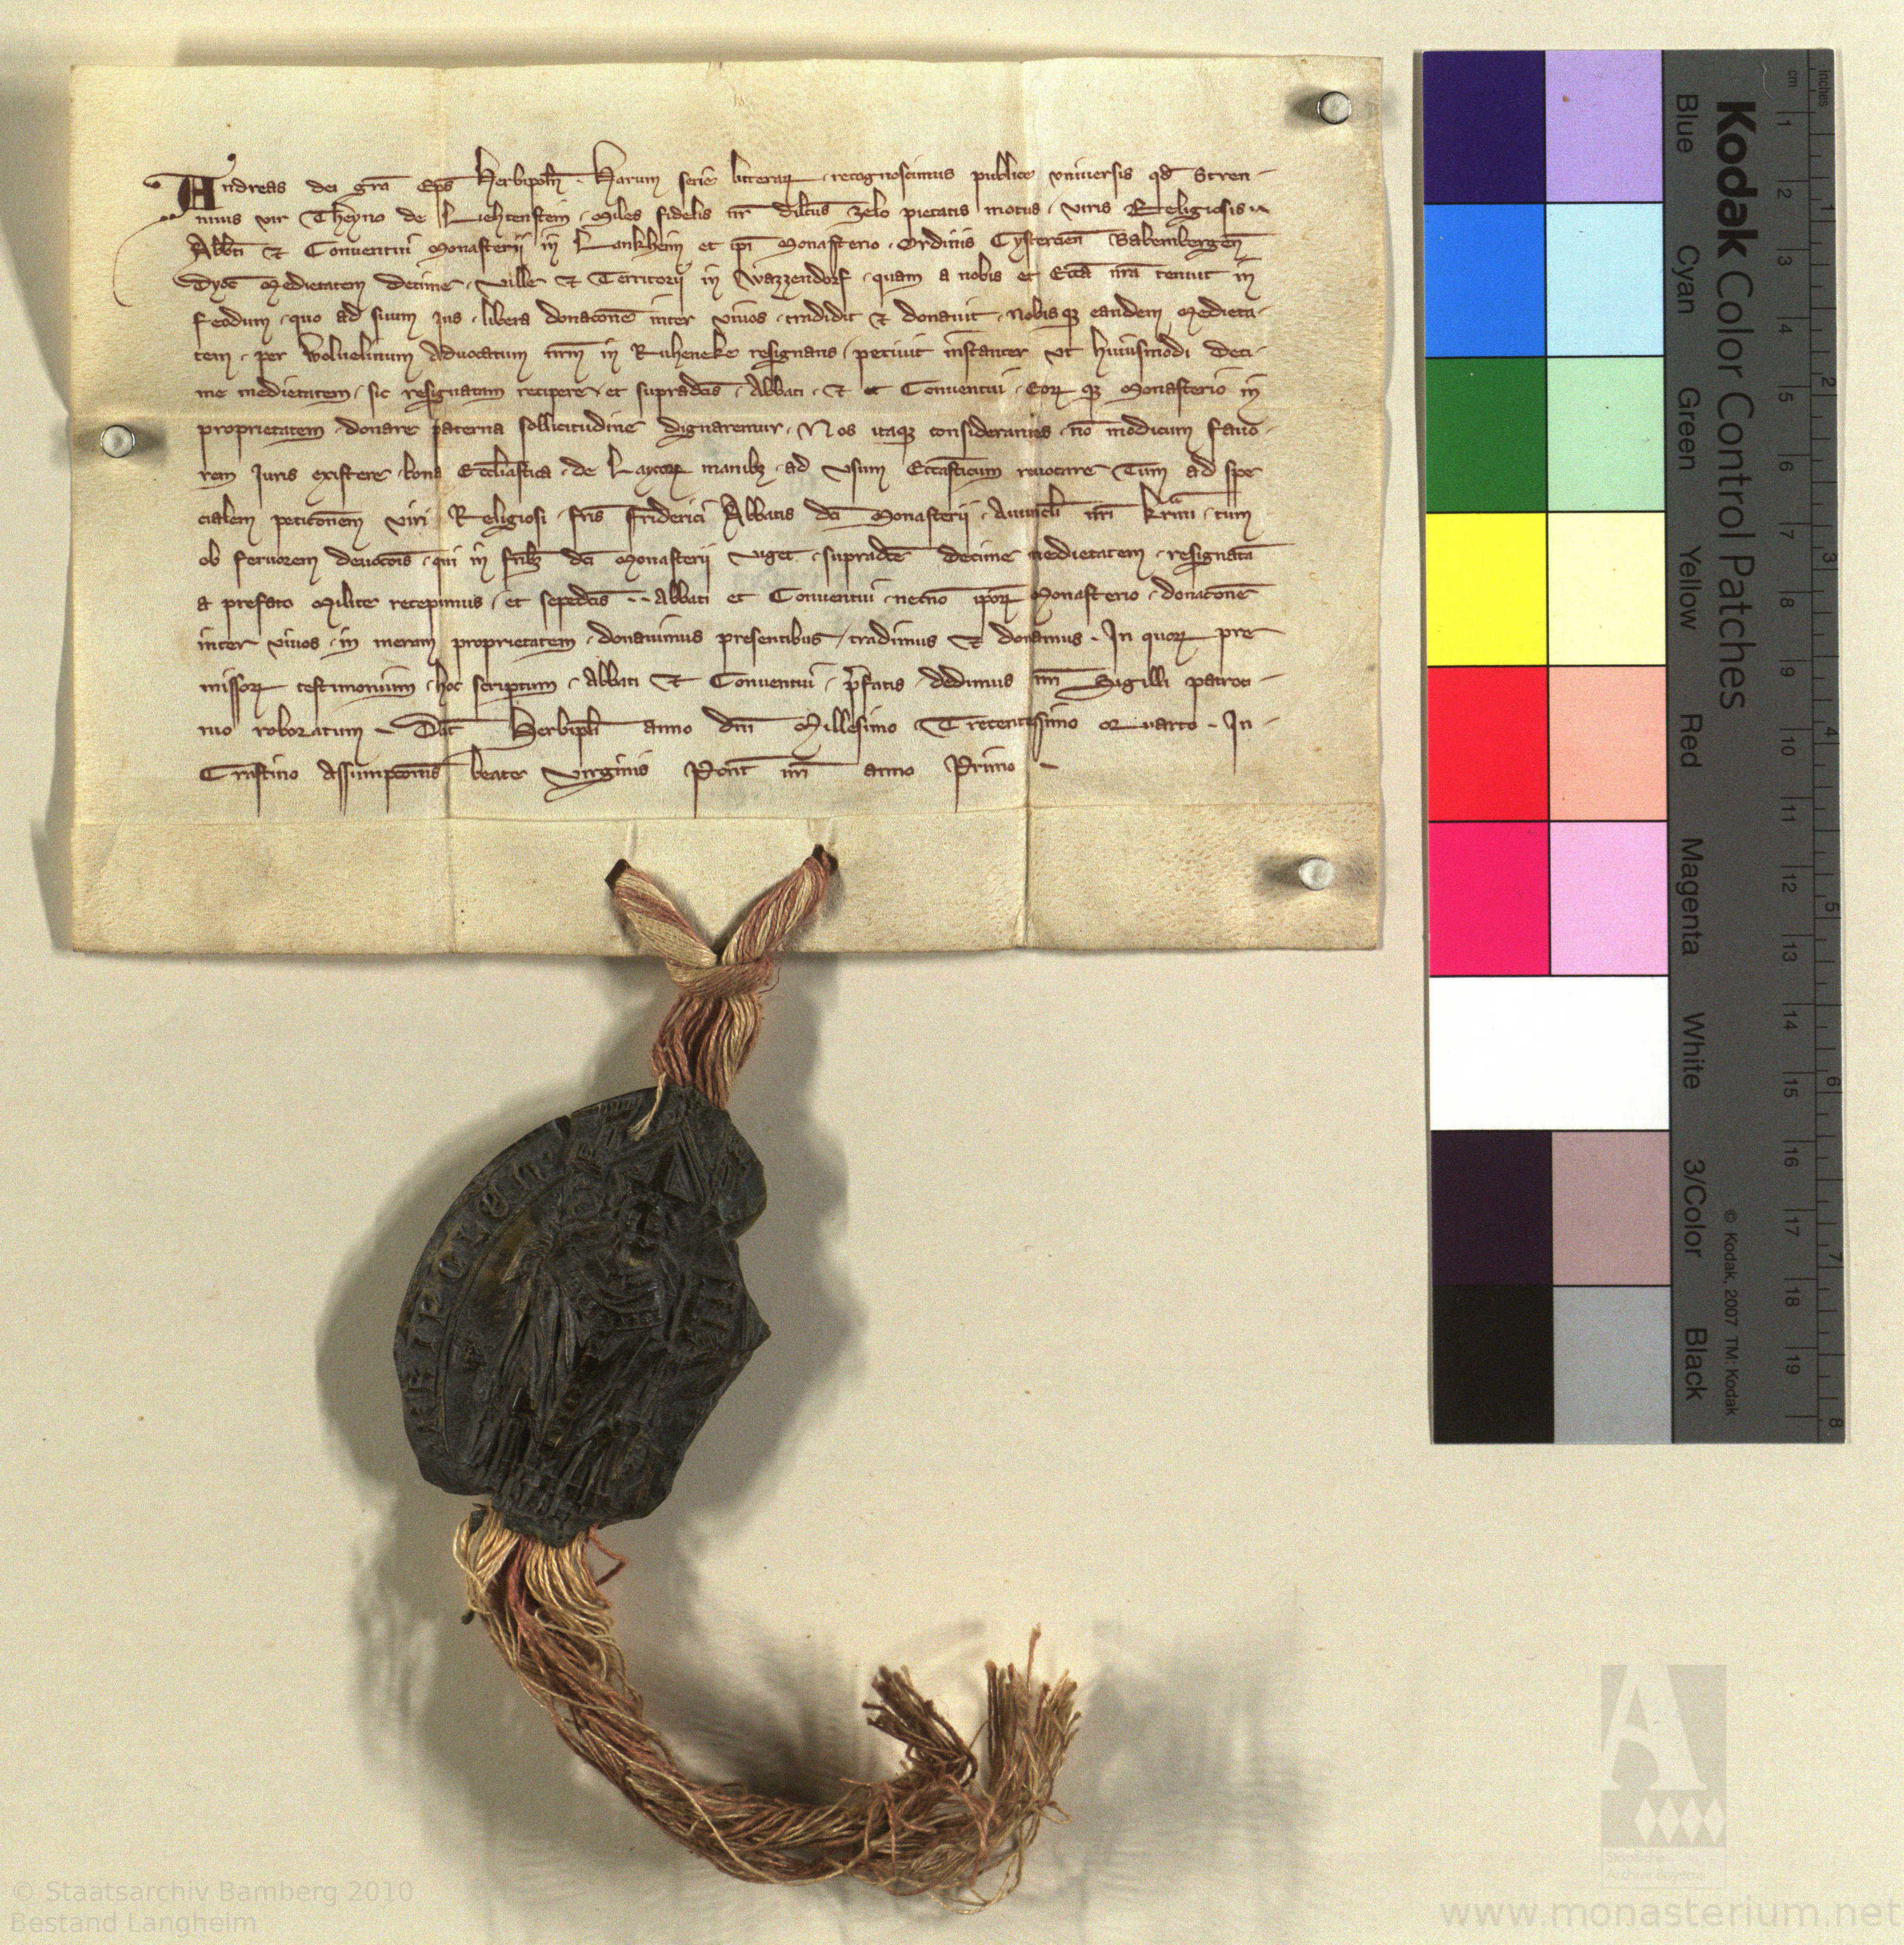 Andreas dei grā Ep̄s Herbipoln̄ . Harum serie litterarꝝ . recognoscimus publice vniuersis qd̄ Stren-
nuus vir Theyno de Liehtenstein . Miles fidelis nr̄ dilc̄us zelo pietatis motus . viris Religiosis ..
Abbti et Conuentui Monasterij in Lankheim et ip̄i Monasterio . Ordinis Cystercień Babembergeń
Dyoc̄ Medietatem decime . Ville et Territorij in Wazzendorf . quam a nobis et Ecc̄a nr̄a tenuit in
feodum . quo ad suum ius . libera donac̄one inter viuos . tradidit et donauit . nobisqꝫ eandem medieta-
tem . per Woluelinum Aduocatum nr̄m in Ruheneke resignans . petiuit instanter vt huiusmodi deci-
me medietatem . sic resignatam recipere . et supradc̄is . Abbati . et et Conuentui . Eorꝝ qꝫ Monasterio in
proprietatem . donare paterna sollicitudine dignaremur . Nos itaqꝫ considerantes . nō modicum fauo-
rem Juris existere . bona Eccl̄iastica . de Laycorꝝ manibꝫ . ad vsum Ecc̄asticum reuocare Tum ad spe
cialem petic̄onem viri Religiosi . fr̄is Friderici Abbatis dc̄i Monasterij . Auunc̄li nr̄i kr̄mi . tum
ob feruorem deuoc̄ois . qui in fr̄ibꝫ dc̄i Monasterij viget . supradc̄e decime medietatem . resignatā
a prefato Milite recepimus . et sepedc̄is .. Abbati et Conuentui . necnō ip̄orꝝ Monasterio . donac̄one
inter viuos . in meram proprietatem . donauimus presentibus . tradimus et donamus . In quorꝝ pre
missorꝝ testimonium . hoc scriptum . Abbati et Conuentui . p̄fatis . dedimus nr̄i Sigilli patroci-
nio roboratum . Dat̄ Herbipl̄i anno dn̄i Millesimo . Trecentesimo Quarto . In
Crastino Assumpc̄onis beate Virginis Pont̄ nr̄i anno Primo .
IPOLEN
Kodak Color Control Patches
Blue Cyan Green Yellow Red Magenta White 3/Color Black
© Kodak, 2007 TM: Kodak
cm 1 2 3 4 5 6 7 8 9 10 11 12 13 14 15 16 17 18 19
inches 1 2 3 4 5 6 7 8
© Staatsarchiv Bamberg 2010
Bestand Langheim
www.monasterium.net